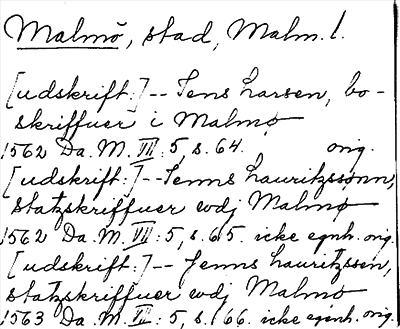 Malmö, stad, Malm. l.
[udskrift:] -- Jens Larsen, bo-
skriffuer i Malmø
1562 Da. M. VII: 5, s. 64. orig.
[udskrift:] -- Jenns Lauritzssønn,
statzskriffuer wdj Malmø
1562 Da. M. VII: 5, s. 65. icke egnh. orig.
[udskrift:] -- Jenns Lauritzssen,
statzskriffuer wdj Malmø
1563 Da. M. VII: 5, s. 66. icke egenh. orig.